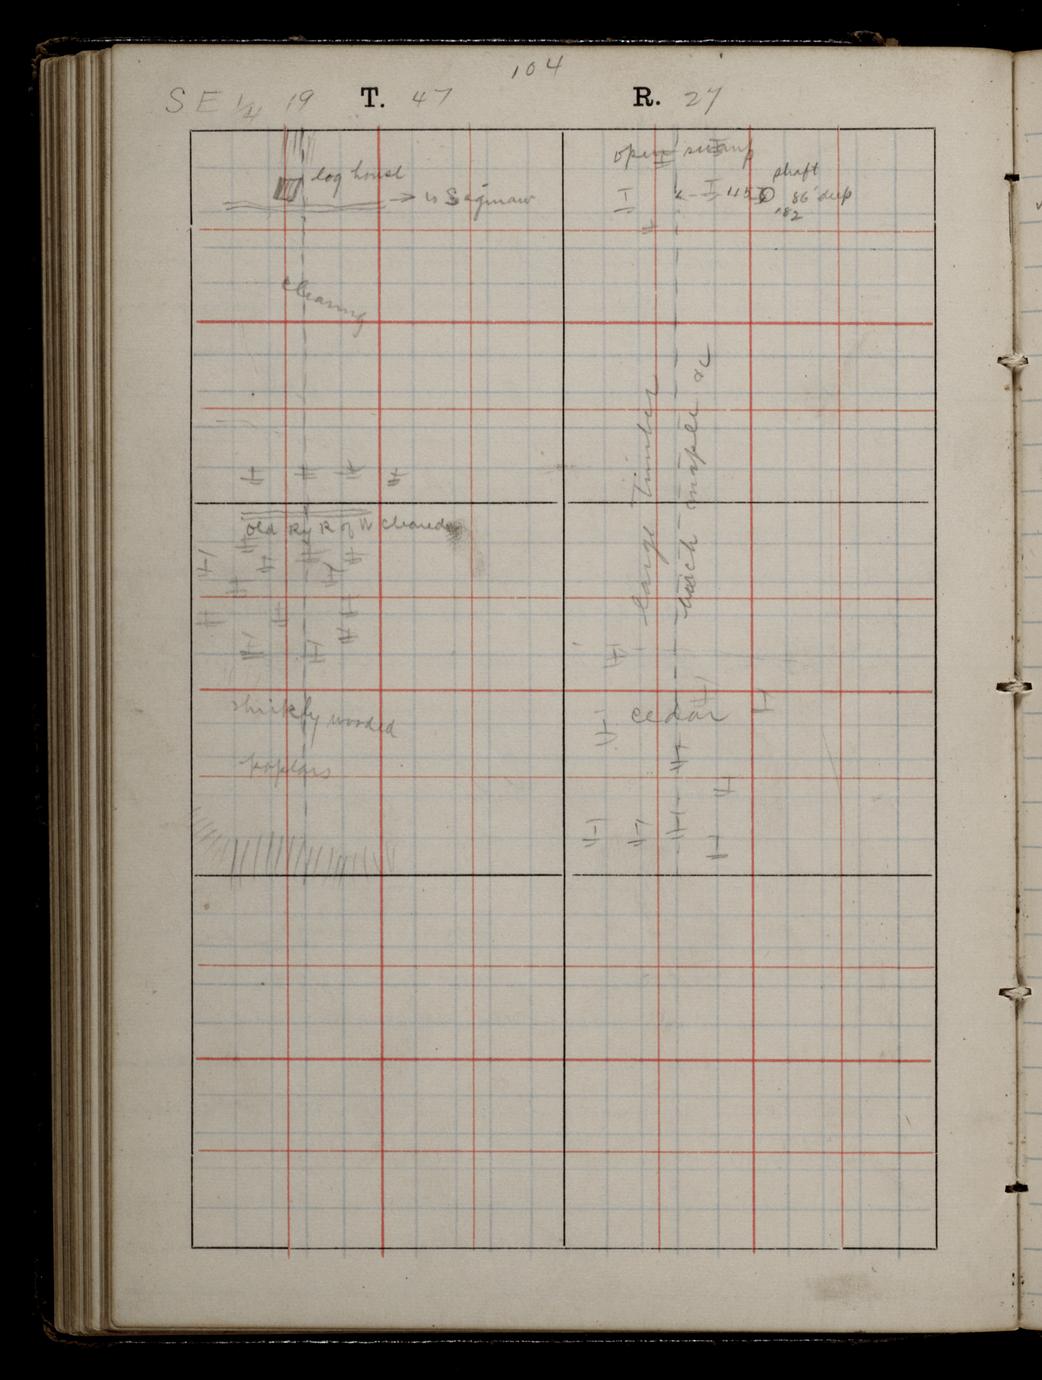 104
SE 1/4 19 T. 47 R. 27
log house
→ to Saginaw
clearing
old Ry R of W cleared
thickly wooded
poplars
open swamp
shaft
450
86' deep
'82
large timber
beach maple &c
cedar